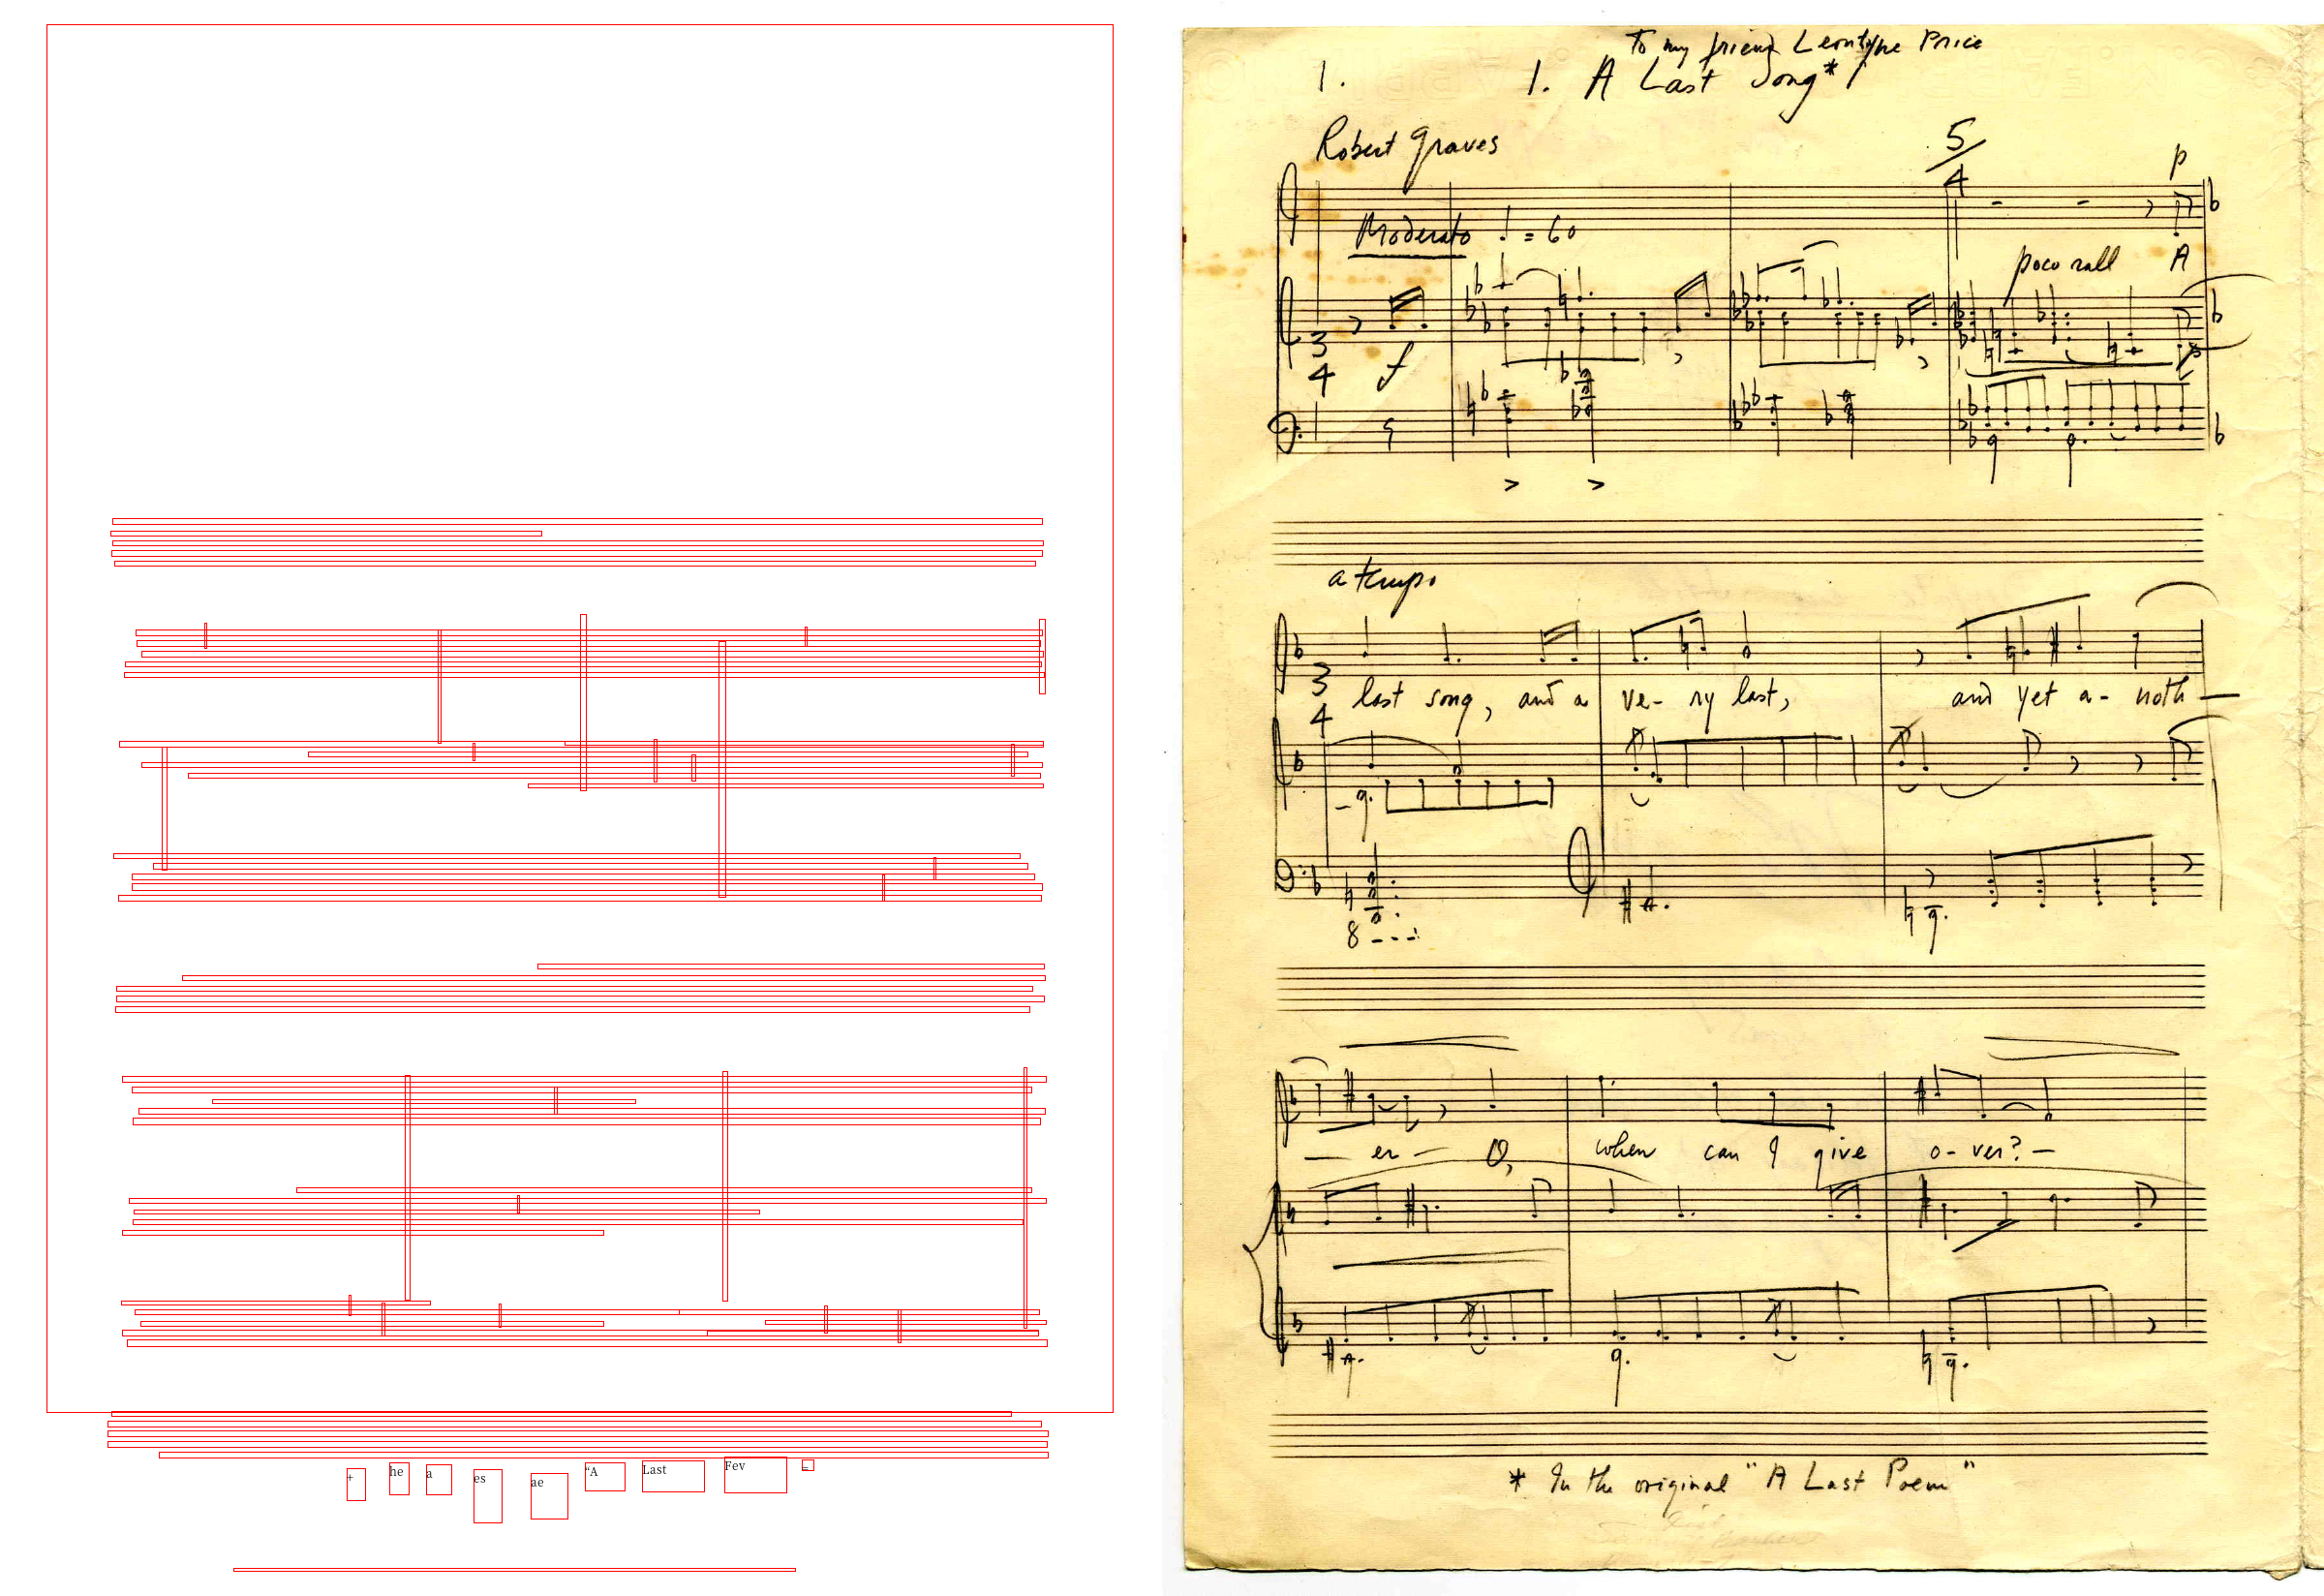 + he a es ae “A Last Fev =
To my friend Leontyne Price
1. 1. A Last Song*
Robert Graves
5/4
p
Moderato ♩ = 60
poco rall A
3/4
f
a tempo
3/4
last song, and a ve- ry last, and yet a- noth —
8 - - - :
— er — O, when can I give o- ver? —
* In the original "A Last Poem"